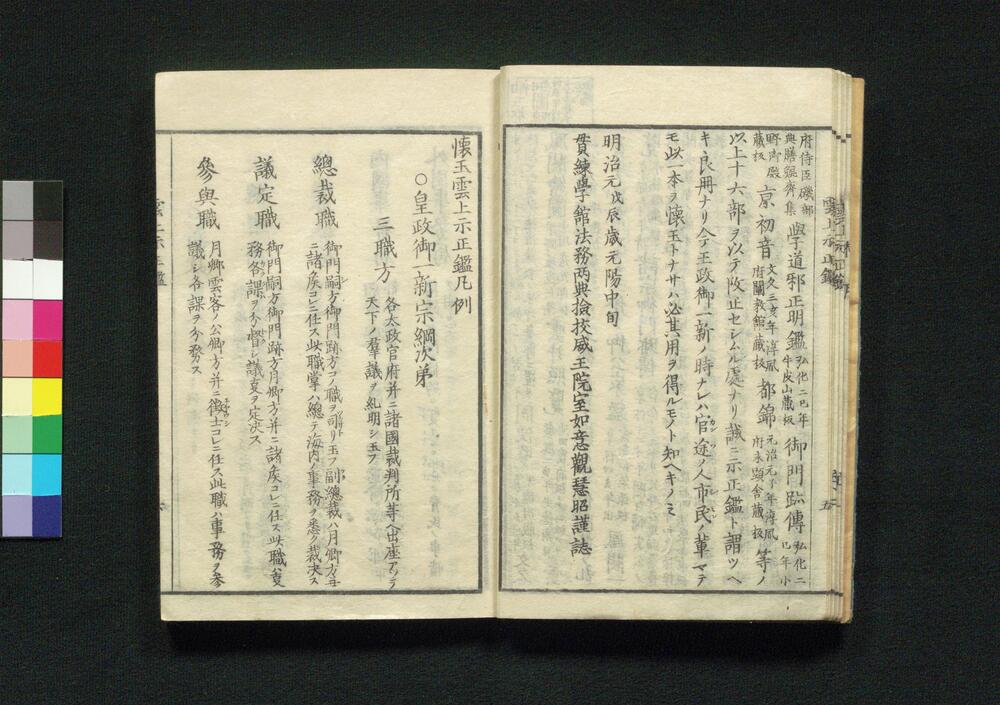 府侍臣磯部
與膳鯤齊集
學道邪正明鑑
弘化二巳年
牛皮山藏板
御門跡傳
弘化二
巳年小
野御殿
藏板
京初音
文久三亥年淳風
府闡教館藏板
都錦
元治元子年淳風
府末顕舎藏板
等ノ
以上十六部ヲ以テ改正セシムル處ナリ誠ニ示正鑑ト謂ツヘ
キ良冊ナリ今王政御一新ノ時ナレハ官途ノ人市民ノ輩マテ
モ此一本ヲ懷玉トナサハ必其用ヲ得ルモノト知ヘキノミ
明治元戊辰歳元陽中旬
貫練學館法務両典撿挍威王院室如意觀慧昭謹誌
懷玉雲上示正鑑凡例
○皇政御一新宗綱次第
三職方
各太政官府并ニ諸國裁判所等ヘ出座アツテ
天下ノ羣議ヲ糺明シ玉フ
總裁職
御門嗣方御門跡方コノ職ヲ司リ玉フ副總裁ハ月卿方并
ニ諸矦コレニ任ス此職掌ハ總テ海内ノ事務ヲ悉ク裁決ス
議定職
御門嗣方御門跡方月卿方并ニ諸矦コレニ任ス此職ハ㕝
務各課ヲ分督シ議㕝ヲ定决ス
參與職
月卿雲客ノ公卿方并ニ徴士コレニ任ス此職ハ事務ヲ參
議シ各課ヲ分務ス
雲上示正鑑